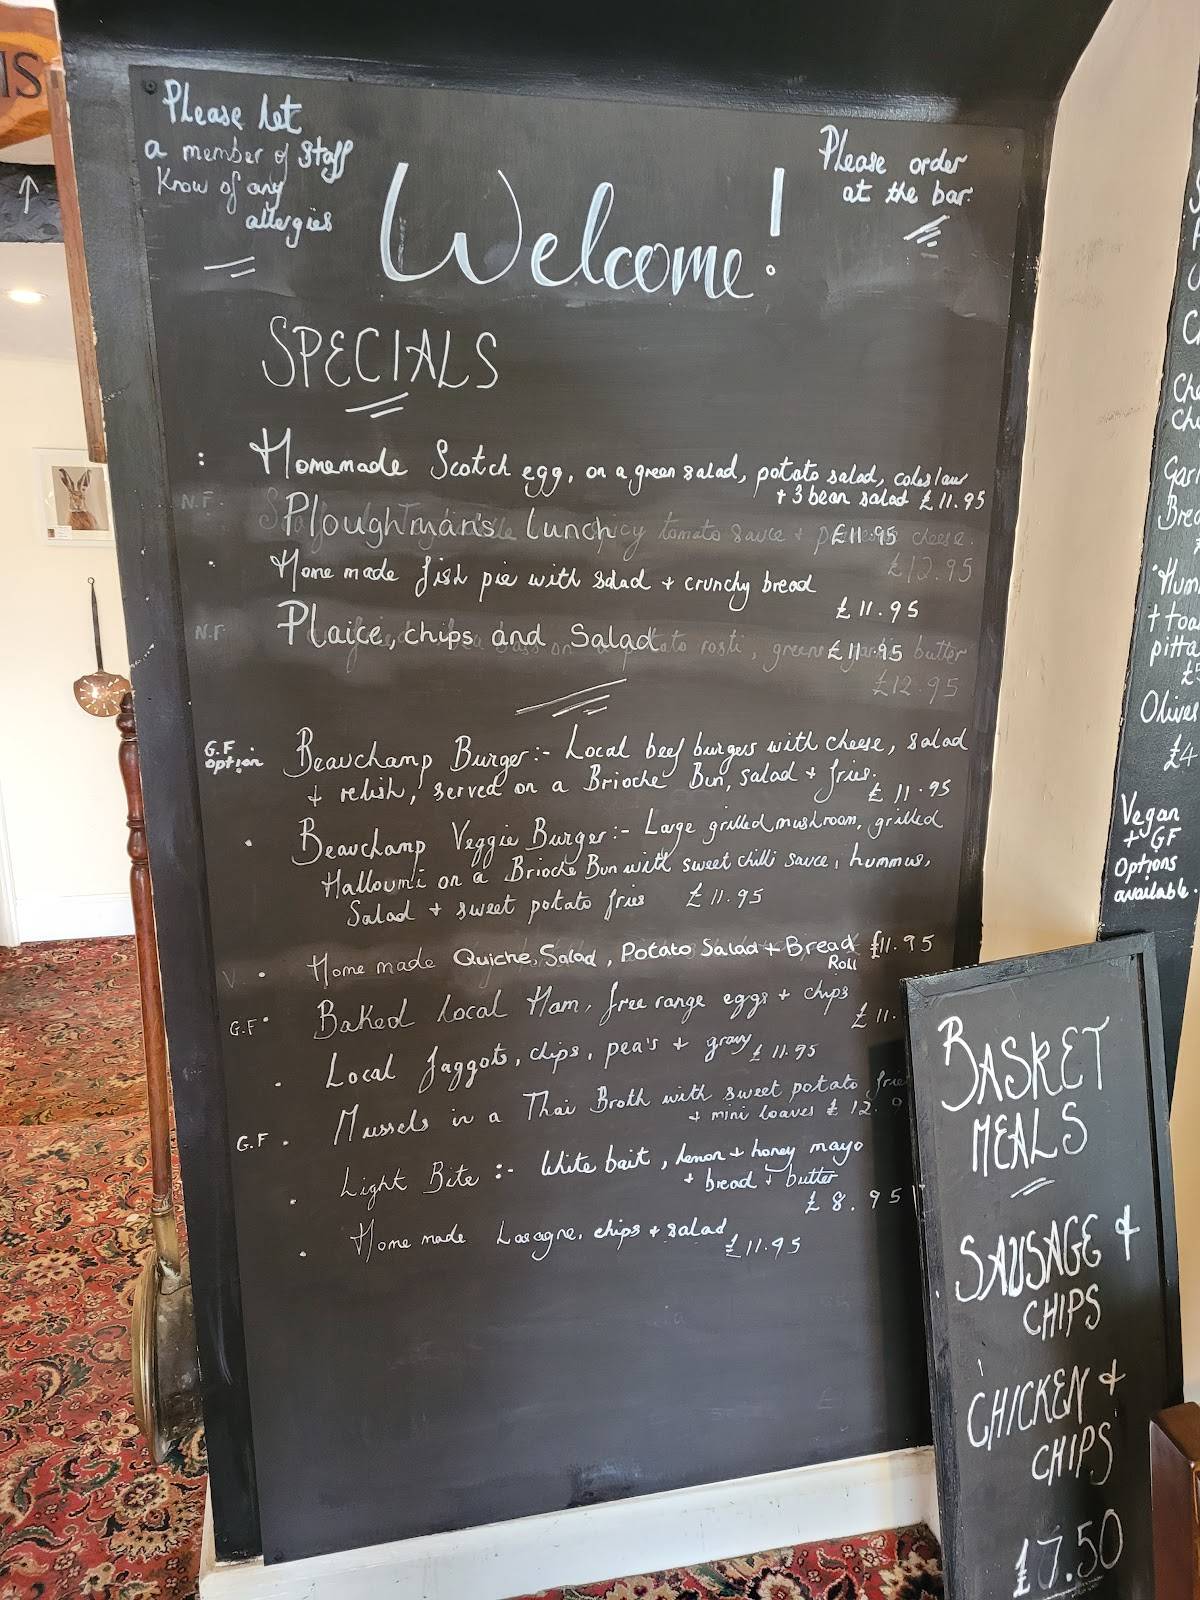 Please let
a member of staff
know of any
allergies
Welcome!
Please order
at the bar.
SPECIALS
Homemade Scotch egg, on a green salad, potato salad, coleslaw
+ 3 bean salad £11.95
N.F. Ploughman's Lunch £11.95
£12.95
Home made fish pie with salad + crunchy bread
£11.95
N.F. Plaice, chips and Salad £11.95
£12.95
G.F.
option
Beauchamp Burger:- Local beef burgers with cheese, salad
+ relish, served on a Brioche Bun, salad + fries. £11.95
Beauchamp Veggie Burger:- Large grilled mushroom, grilled
Halloumi on a Brioche Bun with sweet chilli sauce, hummus,
Salad + sweet potato fries £11.95
V. Home made Quiche, Salad, Potato Salad + Bread £11.95
Roll
G.F. Baked local Ham, free range eggs + chips
£11.
Local faggots, chips, pea's + gravy £11.95
G.F. Mussels in a Thai Broth with sweet potato frie
+ mini loaves £12.9
Light Bite :- White bait, lemon + honey mayo
+ bread + butter
£8.95
Home made Lasagne, chips + salad
£11.95
BASKET
MEALS
SAUSAGE +
CHIPS
CHICKEN +
CHIPS
£7.50
Olives
£4
Vegan
+ GF
Options
available.